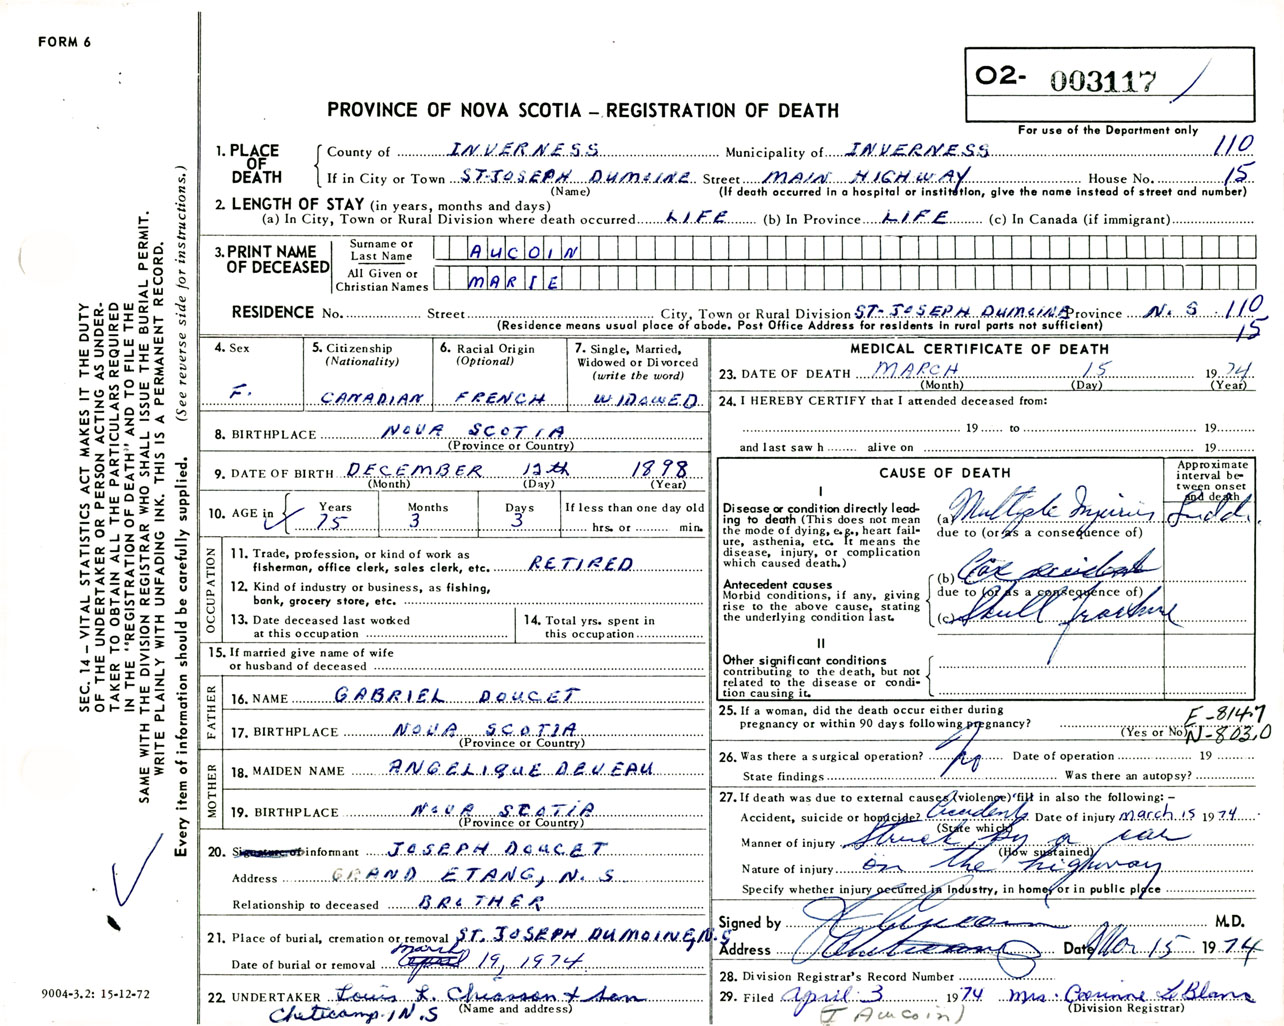 FORM 6
O2- 003117
PROVINCE OF NOVA SCOTIA – REGISTRATION OF DEATH
For use of the Department only
SEC. 14 – VITAL STATISTICS ACT MAKES IT THE DUTY
OF THE UNDERTAKER OR PERSON ACTING AS UNDER-
TAKER TO OBTAIN ALL THE PARTICULARS REQUIRED
IN THE "REGISTRATION OF DEATH" AND TO FILE THE
SAME WITH THE DIVISION REGISTRAR WHO SHALL ISSUE THE BURIAL PERMIT.
WRITE PLAINLY WITH UNFADING INK. THIS IS A PERMANENT RECORD.
Every item of information should be carefully supplied. (See reverse side for instructions.)
1. PLACE OF DEATH
County of INVERNESS Municipality of INVERNESS 110
If in City or Town ST-JOSEPH DUMOINE Street MAIN HIGHWAY House No. 15
(Name) (If death occurred in a hospital or institution, give the name instead of street and number)
2. LENGTH OF STAY (in years, months and days)
(a) In City, Town or Rural Division where death occurred LIFE (b) In Province LIFE (c) In Canada (if immigrant)
3. PRINT NAME OF DECEASED
Surname or Last Name AUCOIN
All Given or Christian Names MARIE
RESIDENCE No. Street City, Town or Rural Division ST-JOSEPH DUMOINE Province N. S. 110
(Residence means usual place of abode. Post Office Address for residents in rural parts not sufficient) 15
4. Sex F.
5. Citizenship (Nationality) CANADIAN
6. Racial Origin (Optional) FRENCH
7. Single, Married, Widowed or Divorced (write the word) WIDOWED
8. BIRTHPLACE NOVA SCOTIA
(Province or Country)
9. DATE OF BIRTH DECEMBER 12th 1898
(Month) (Day) (Year)
10. AGE in Years 75 Months 3 Days 3 If less than one day old hrs. or min.
OCCUPATION
11. Trade, profession, or kind of work as fisherman, office clerk, sales clerk, etc. RETIRED
12. Kind of industry or business, as fishing, bank, grocery store, etc.
13. Date deceased last worked at this occupation
14. Total yrs. spent in this occupation
15. If married give name of wife or husband of deceased
FATHER
16. NAME GABRIEL DOUCET
17. BIRTHPLACE NOVA SCOTIA
(Province or Country)
MOTHER
18. MAIDEN NAME ANGELIQUE DEVEAU
19. BIRTHPLACE NOVA SCOTIA
(Province or Country)
20. Signature of informant JOSEPH DOUCET
Address GRAND ETANG, N. S
Relationship to deceased BROTHER
21. Place of burial, cremation or removal ST. JOSEPH DUMOINE, N.S
Date of burial or removal april march 19, 1974
22. UNDERTAKER Louis L. Chiasson & Son
(Name and address)
Cheticamp, N.S
MEDICAL CERTIFICATE OF DEATH
23. DATE OF DEATH MARCH 15 1974
(Month) (Day) (Year)
24. I HEREBY CERTIFY that I attended deceased from:
19 to 19
and last saw h alive on 19
CAUSE OF DEATH
Approximate interval between onset and death
I
Disease or condition directly leading to death (This does not mean the mode of dying, e.g., heart failure, asthenia, etc. It means the disease, injury, or complication which caused death.)
(a) Multiple Injuries Sudd.
due to (or as a consequence of)
Antecedent causes
Morbid conditions, if any, giving rise to the above cause, stating the underlying condition last.
(b) Car accident
due to (or as a consequence of)
(c) Skull fracture
II
Other significant conditions
contributing to the death, but not related to the disease or condition causing it.
25. If a woman, did the death occur either during pregnancy or within 90 days following pregnancy? (Yes or No)
E-8147
N-803.0
26. Was there a surgical operation? No Date of operation 19
State findings Was there an autopsy?
27. If death was due to external causes (violence) fill in also the following: –
Accident, suicide or homicide? Accident Date of injury march 15 1974
(State which)
Manner of injury Struck by a car
(How sustained)
Nature of injury on the highway
Specify whether injury occurred in industry, in home, or in public place
Signed by M.D.
Address Cheticamp Date Mar 15 1974
28. Division Registrar's Record Number
29. Filed April 3 1974 Mrs. Corinne LeBlanc
(Division Registrar)
9004-3.2: 15-12-72